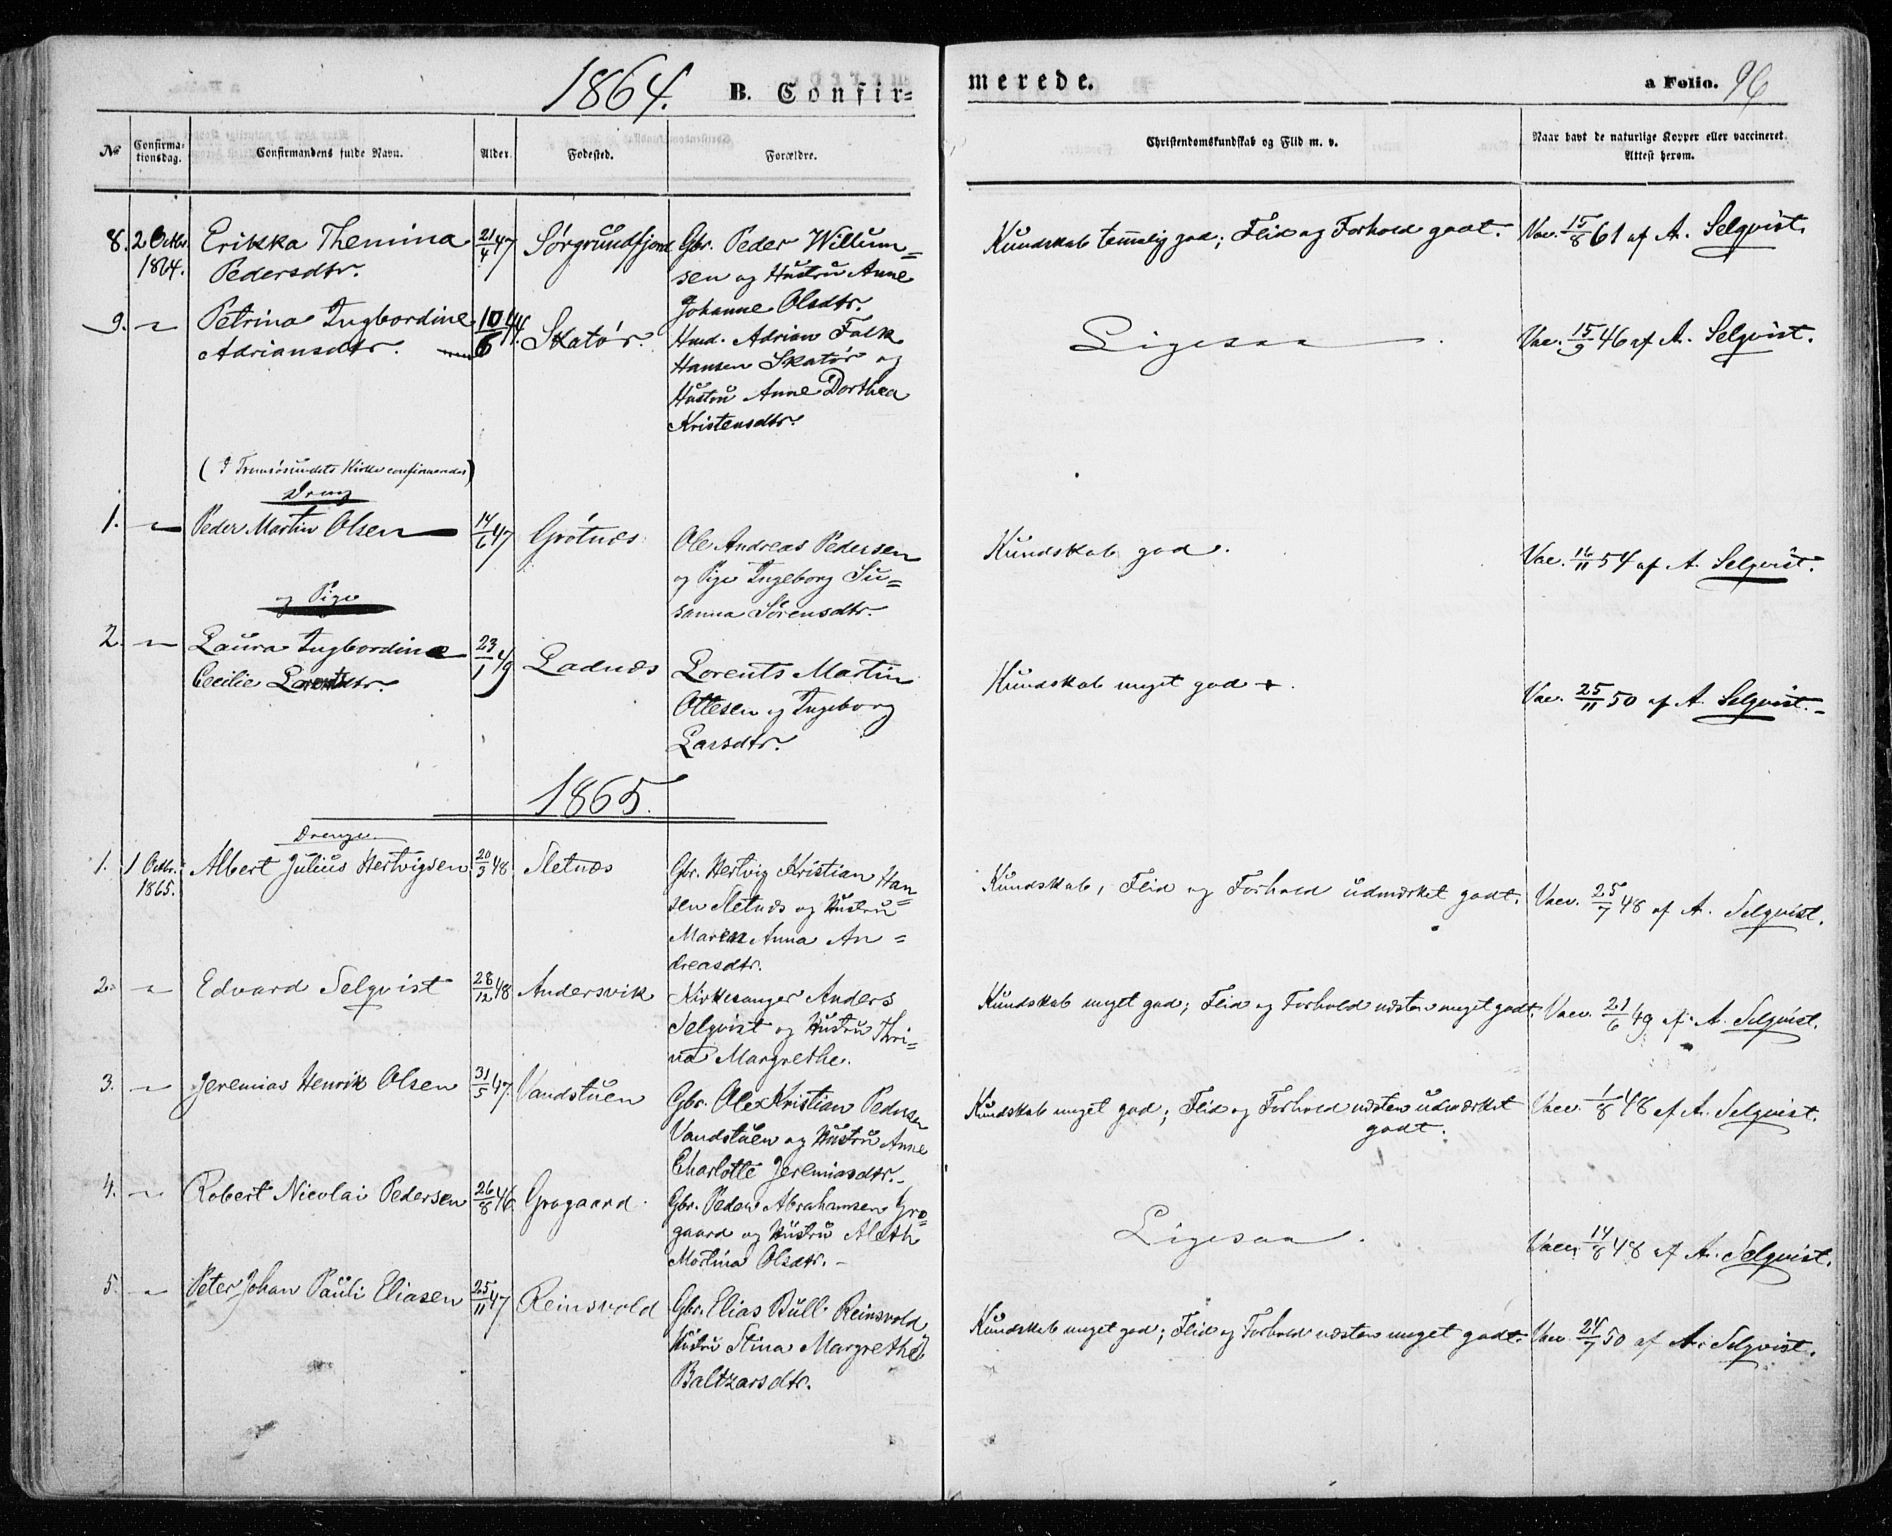 1864. B. Confir=
merede. a Folio. 96
No Confirma-tionsdag. Confirmandens fulde Navn. Alder. Fødested. Forældre. Christendomskundskab og Flid m. v. Naar havt de naturlige Kopper eller vaccineret. Attest herom.
8. 2 Octbr. 1864. Erikka Themina Pedersdtr. 21/4 47 Sørgrundfjord Gbr. Peder Willum=
sen og Hustru Anne
Johanne Olsdtr.
Kundskab temmelig god; Flid og Forhold godt. Vac. 15/8 61 af A. Selqvist.
9. " Petrina Ingbordine Adriansdtr. 10/6 44. Skatør. Huusd. Adrian Falk
Hansen Skatør og
Hustru Anne Dorthea
Kristensdtr.
Ligesaa. Vac. 15/9 46 af A. Selqvist.
(I Tromsøsundets Kirke confirmerede)
Dreng
1. " Peder Martin Olsen 14/6 47 Grøtnæs Ole Andreas Pedersen
og Pige Ingeborg Su=
sanna Sørensdtr.
Kundskab god. Vac. 16/11 54 af A. Selqvist.
og Pige
2. " Laura Ingbordine
Cecilie Lorentsdtr. 23/1 49 Ladnæs Lorents Martin
Ottesen og Ingeborg
Larsdtr.
Kundskab meget god +. Vac. 25/11 50 af A. Selqvist.
1865.
Drenge
1. 1 Octbr. 1865. Albert Julius Hertvigsen. 20/3 48. Sletnæs Gbr. Hertvig Kristian Han=
sen Sletnæs og Hustru
Maren Anna An=
dreasdtr.
Kundskab, Flid og Forhold udmærket godt. Vacc. 25/7 48 af A. Selqvist.
2. " Edvard Selqvist 28/12 48 Andersvik Kirkesanger Anders
Selqvist og Hustru Thri=
na Margrethe.
Kundskab meget god; Flid og Forhold næsten meget godt. Vacc. 21/6 49 af A. Selqvist.
3. " Jeremias Henrik Olsen 31/5 47. Vandstuen Gbr. Ole Kristian Pedersen
Vandstuen og Hustru Anne
Charlotte Jeremiasdtr.
Kundskab meget god; Flid og Forhold næsten udmærket
godt. Vacc. 1/8 48 af A. Selqvist.
4. " Robert Nicolai Pedersen 26/8 46. Grøgaard. Gbr. Peder Abrahamsen Grø=
gaard og Hustru Aleth
Martina Olsdtr.
Ligesaa. Vacc. 14/8 48 af A. Selqvist.
5. " Peter Johan Pauli Eliasen 25/11 47 Reinsvold Gbr. Elias Bull Reinsvold
Hustru Stina Margrethe
Baltzarsdtr.
Kundskab meget god; Flid og Forhold næsten meget godt. Vac. 24/7 50 af A. Selqvist.